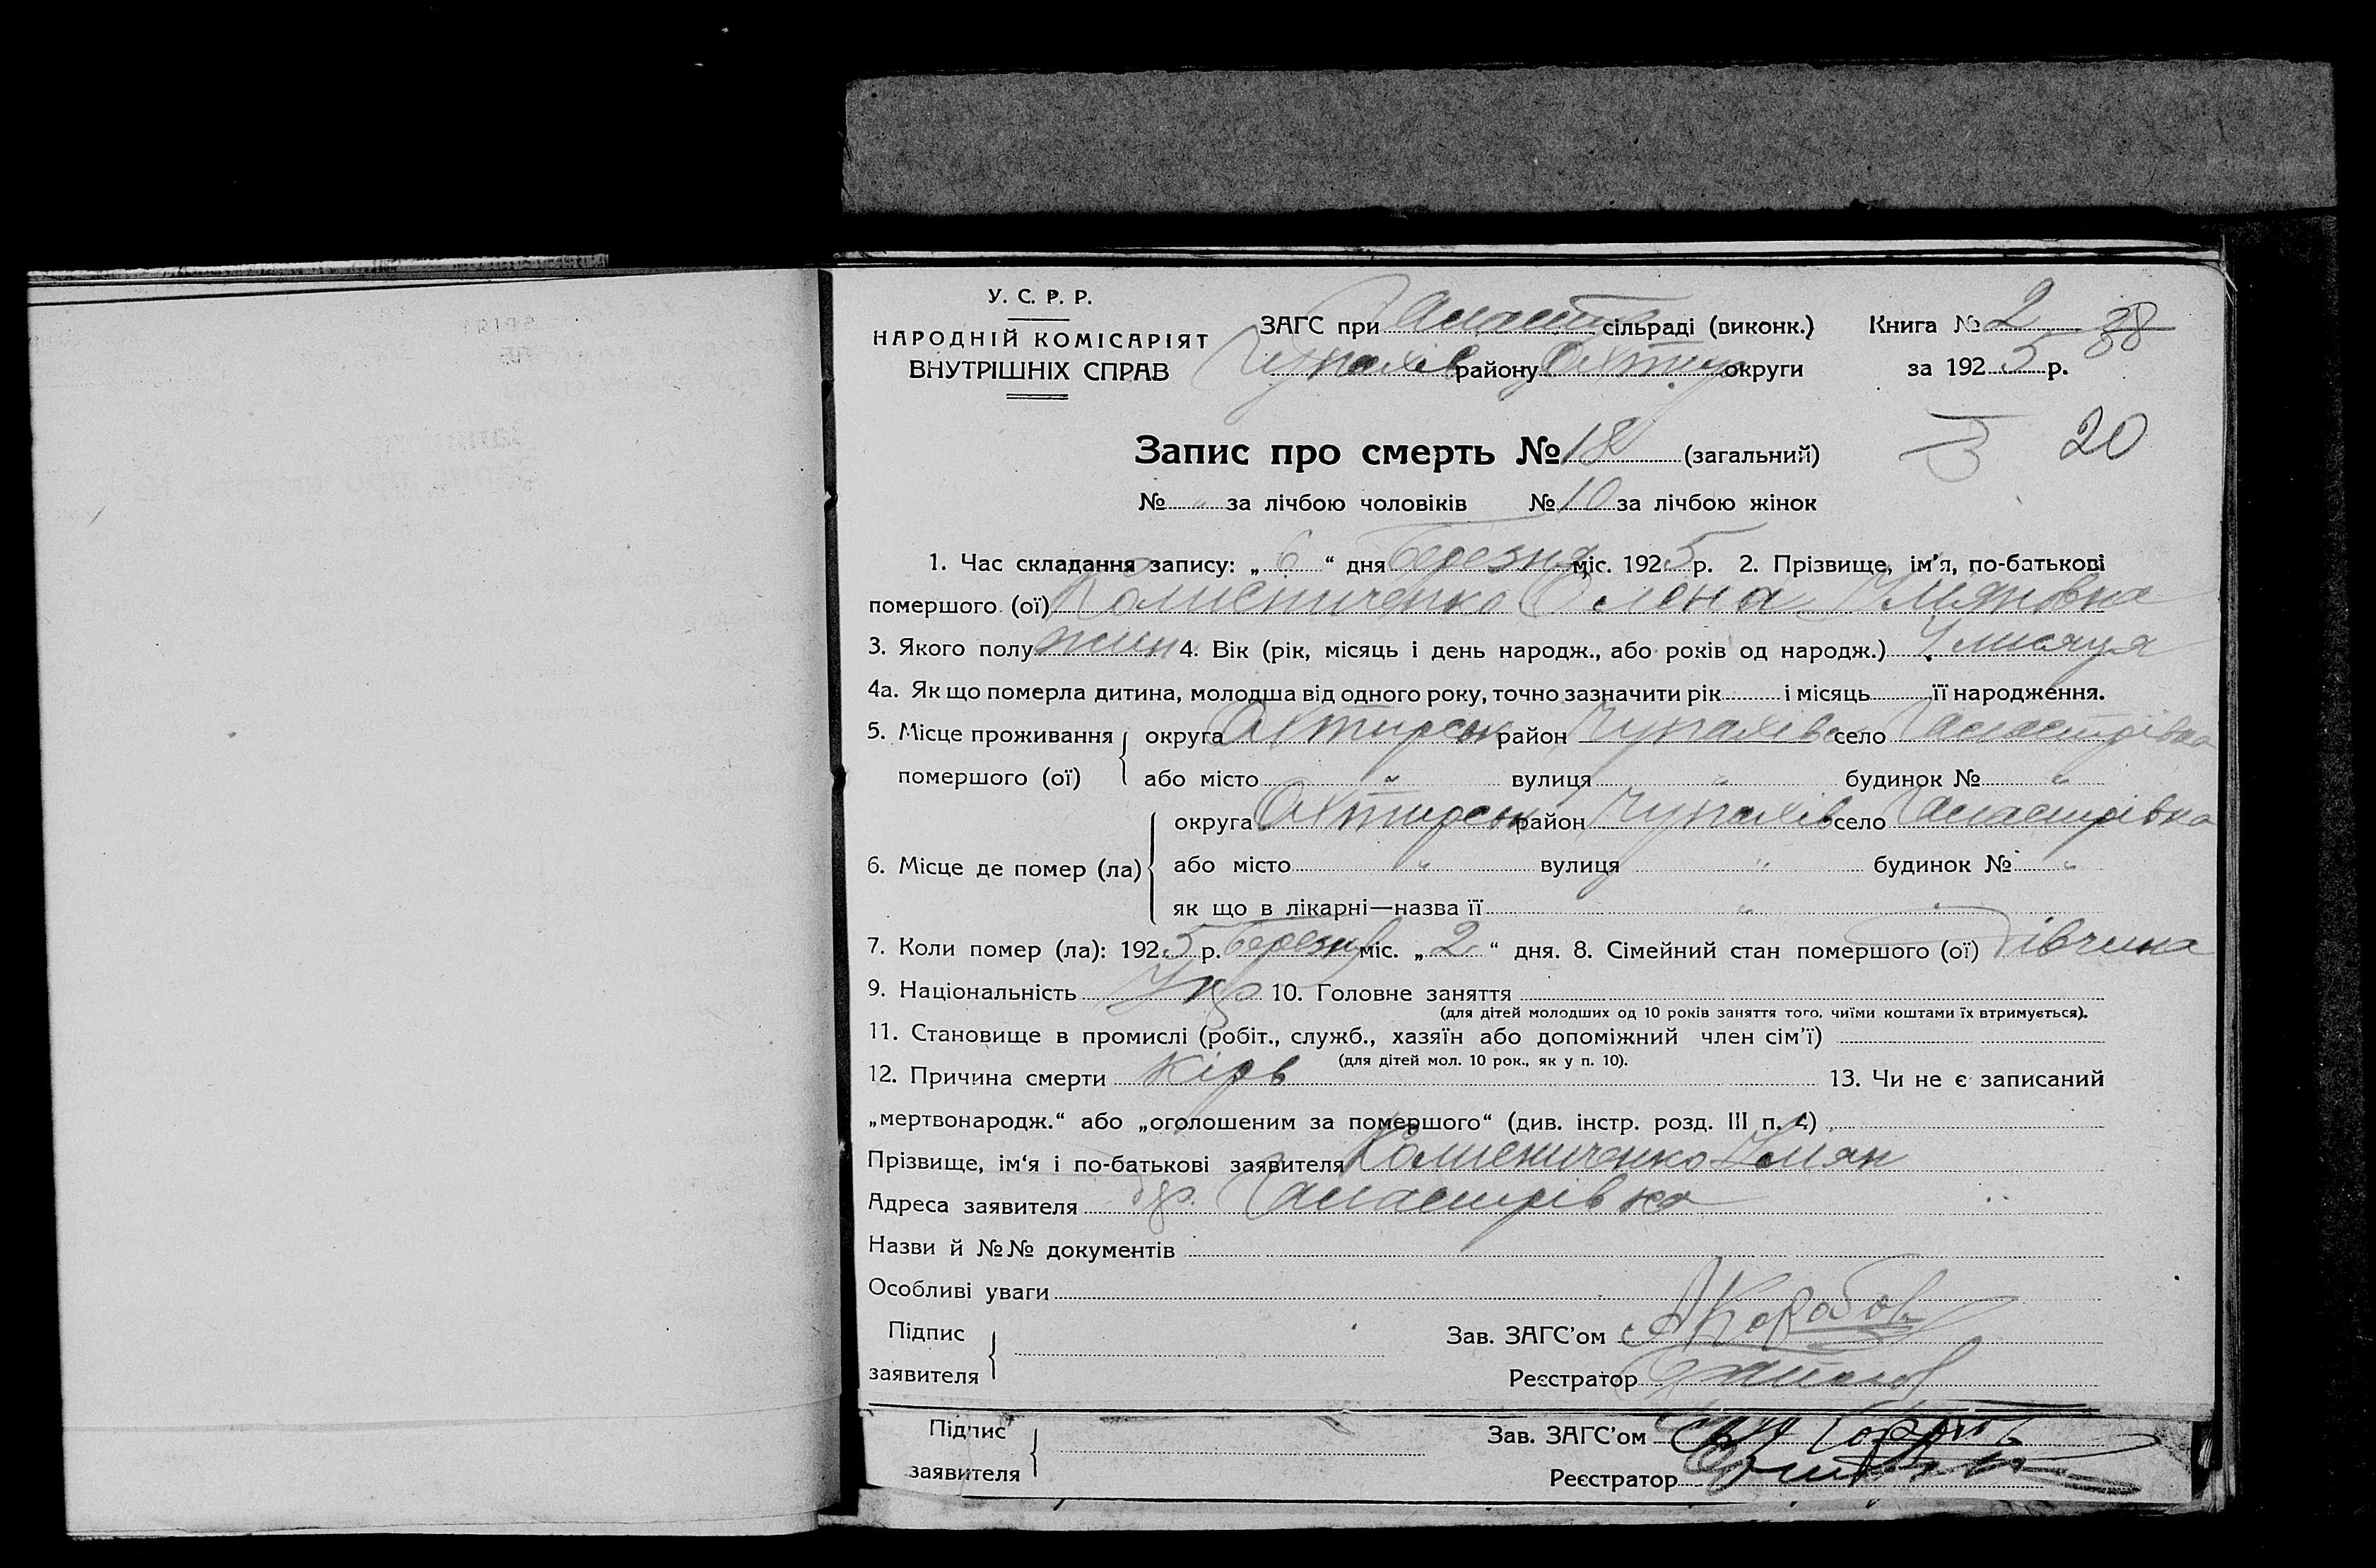 У. С. Р. Р.
НАРОДНІЙ КОМІСАРІЯТ
ВНУТРІШНІХ СПРАВ
ЗАГС при сільраді (виконк.)
Чупахів району Охтир округи
Книга № 2 38
за 1925 р.
Запис про смерть № 18 (загальний)
20
№ „ за лічбою чоловіків № 10 за лічбою жінок
1. Час складання запису: „ 6 “ дня березня міс. 1925 р. 2. Прізвище, ім'я, по-батькові
помершого (ої) Олена
3. Якого полу жин 4. Вік (рік, місяць і день народж., або років од народж.) місяця
4а. Як що померла дитина, молодша від одного року, точно зазначити рік і місяць її народження.
5. Місце проживання помершого (ої) округа Охтирськ район Чупахівс село
або місто „ вулиця „ будинок № „
6. Місце де помер (ла) округа Охтирськ район Чупахів село
або місто „ вулиця „ будинок № „
як що в лікарні—назва її „
7. Коли помер (ла): 1925 р. березня міс. „ 2 “ дня. 8. Сімейний стан помершого (ої) Дівчина
9. Національність Укр 10. Головне заняття
(для дітей молодших од 10 років заняття того, чиїми коштами їх втримується).
11. Становище в промислі (робіт., служб., хазяїн або допоміжний член сім'ї)
(для дітей мол. 10 рок., як у п. 10).
12. Причина смерти Кір 13. Чи не є записаний
„мертвонародж.“ або „оголошеним за помершого“ (див. інстр. розд. III п. 4)
Прізвище, ім'я і по-батькові заявителя
Адреса заявителя
Назви й №№ документів
Особливі уваги
Підпис заявителя
Зав. ЗАГС'ом
Реєстратор
Підпис заявителя
Зав. ЗАГС'ом
Реєстратор